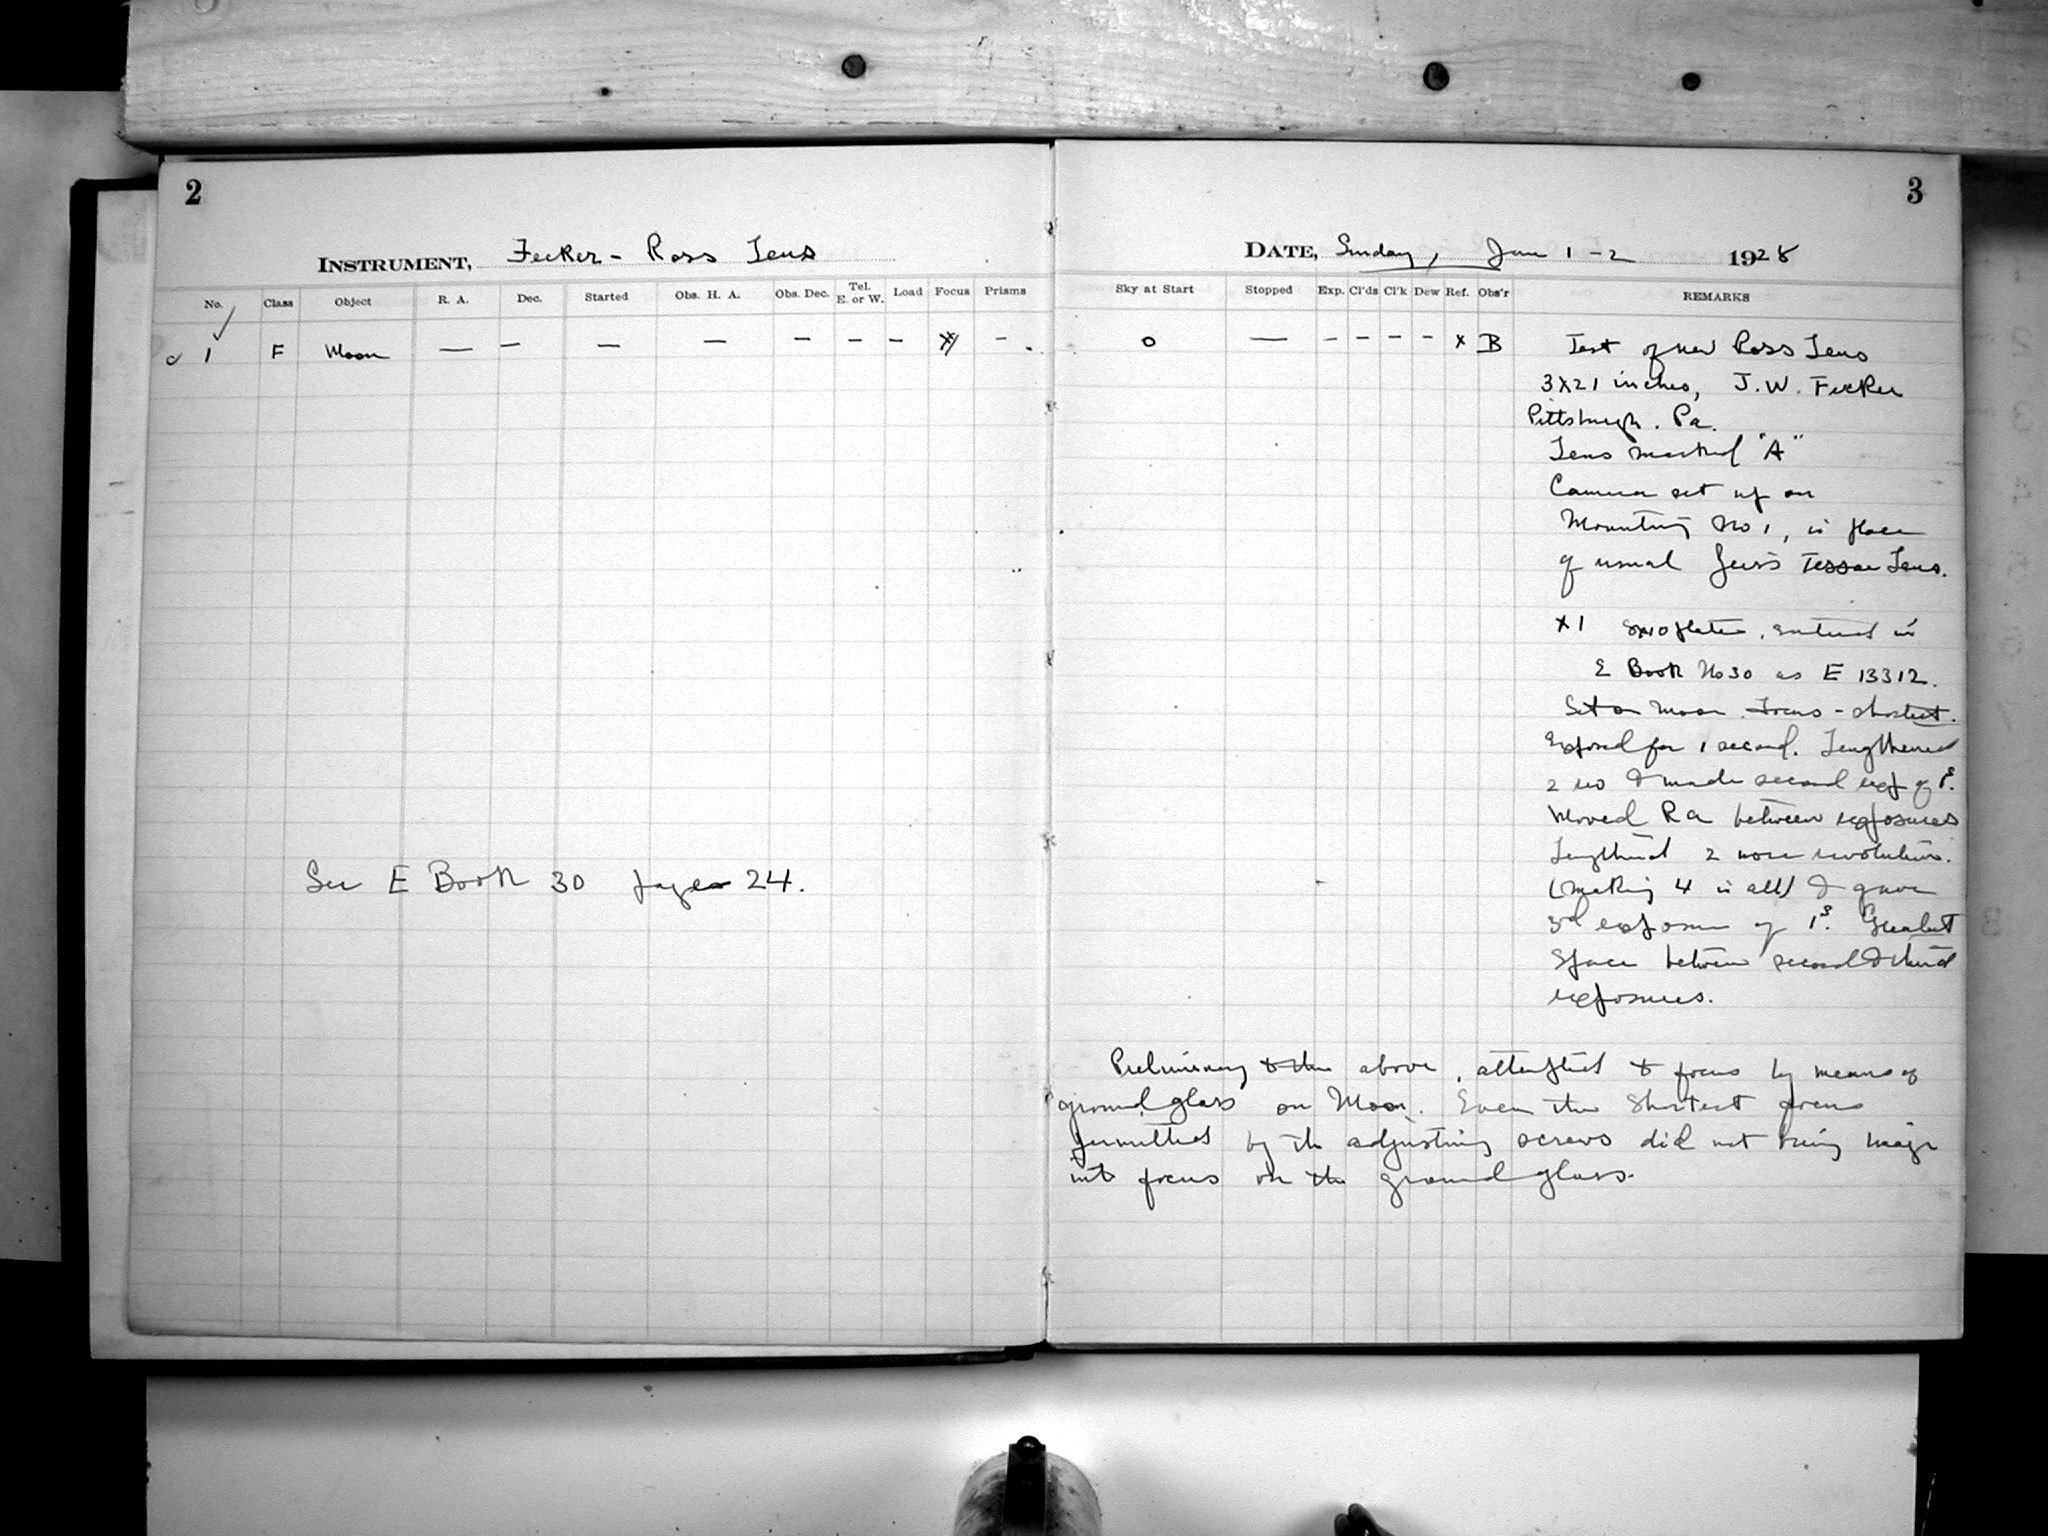 2
INSTRUMENT, Fecker - Ross Lens
No. Class Object R. A. Dec. Started Obs. H. A. Obs. Dec. Tel. E. or W. Load Focus Prisms
1 F Moon — — — — — — — x —
See E Book 30 page 24.
3
DATE, Sunday, Jan 1-2 1928
Sky at Start Stopped Exp. Cl'ds Cl'k Dew Ref. Obs'r REMARKS
0 — — — — — x B Test of new Ross Lens
3x21 inches, J. W. Fecker
Pittsburgh. Pa.
Lens marked "A"
Camera set up on
Mounting No 1, in place
of usual Zeiss Tessar Lens.
x1 8x10 plate, entered in
E Book No 30 as E 13312.
Set on Moon. Focus - shortest.
Exposed for 1 second. Lengthened
2 rev & made second exp of 1s.
Moved Ra between exposures
Lengthened 2 more revolutions.
(making 4 in all) & gave
3rd exposure of 1s. Greatest
space between second & third
exposures.
Preliminary to the above, attempted to focus by means of
ground glass on Moon. Even the shortest focus
permitted by the adjusting screws did not bring image
into focus on the ground glass.